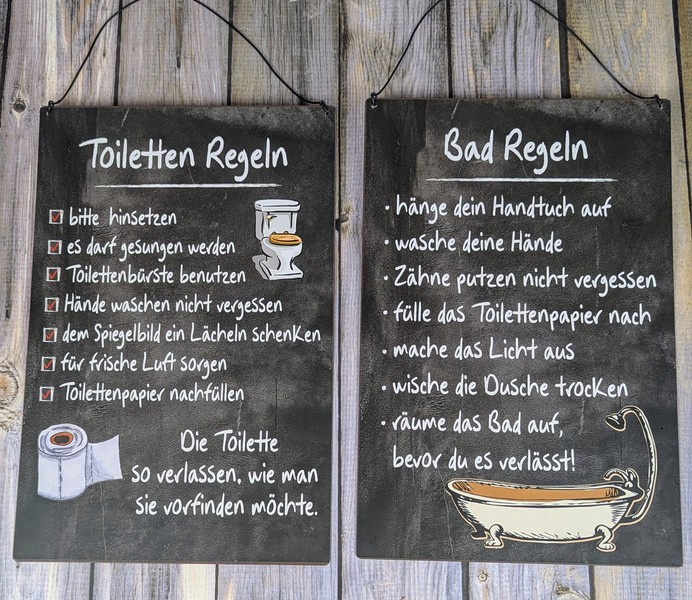 Toiletten Regeln
bitte hinsetzen
es darf gesungen werden
Toilettenbürste benutzen
Hände waschen nicht vergessen
dem Spiegelbild ein Lächeln schenken
für frische Luft sorgen
Toilettenpapier nachfüllen
Die Toilette
so verlassen, wie man
sie vorfinden möchte.
Bad Regeln
· hänge dein Handtuch auf
· wasche deine Hände
· Zähne putzen nicht vergessen
· fülle das Toilettenpapier nach
· mache das Licht aus
· wische die Dusche trocken
· räume das Bad auf,
bevor du es verlässt!